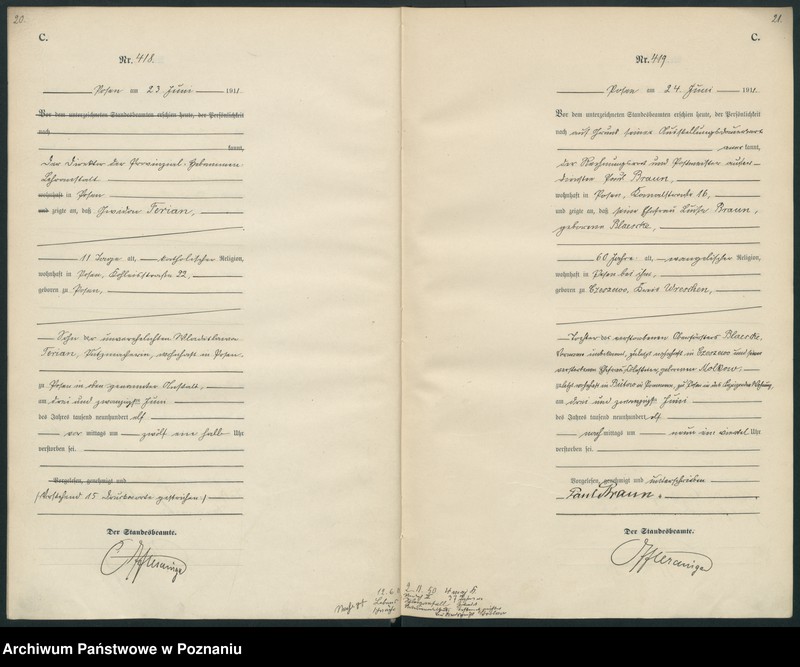 20.
C.
Nr. 418.
Posen am 23. Juni 1911.
Vor dem unterzeichneten Standesbeamten erschien heute, der Persönlichkeit
nach
kannt,
Der Direktor der Provinzial-Hebammen
Lehranstalt
wohnhaft in Posen
und zeigte an, daß Ferian,
11 Tage alt, katholischer Religion,
wohnhaft in Posen, 22,
geboren zu Posen,
Sohn der unverehelichten Wladislawa
Ferian, Putzmacherin, wohnhaft in Posen.
zu Posen in oben genannter Anstalt,
am drei und zwanzigsten Juni
des Jahres tausend neunhundert elf
vor mittags um zwölf ein halb Uhr
verstorben sei.
Vorgelesen, genehmigt und
(Vorstehend 15 Druckworte gestrichen.)
Der Standesbeamte.
21.
C.
Nr. 419.
Posen am 24. Juni 1911.
Vor dem unterzeichneten Standesbeamten erschien heute, der Persönlichkeit
nach auf Grund seiner
anerkannt,
der Rechnungsrat und Postmeister außer
Dienster Paul Braun,
wohnhaft in Posen, 16,
und zeigte an, daß seine Ehefrau Luise Braun,
geborene Blaescke,
60 Jahre alt, evangelischer Religion,
wohnhaft in Posen bei ihm,
geboren zu Czeszewo, Kreis Wreschen,
Tochter des verstorbenen Oberförsters Blaescke,
Vorname unbekannt, zuletzt wohnhaft in Czeszewo und seiner
verstorbenen Ehefrau geborenen Molkow,
zuletzt wohnhaft in Bütow in Pommern, zu Posen in des Anzeigenden Wohnung,
am drei und zwanzigsten Juni
des Jahres tausend neunhundert elf
nach mittags um neun ein viertel Uhr
verstorben sei.
Vorgelesen, genehmigt und unterschrieben
Paul Braun.
Der Standesbeamte.
Archiwum Państwowe w Poznaniu